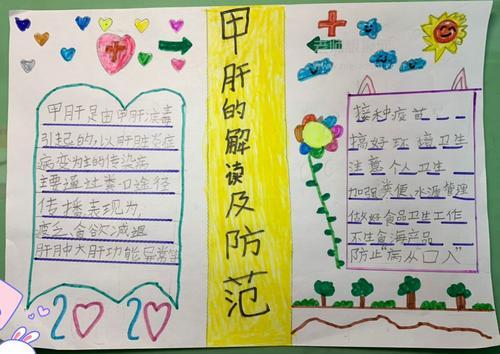 甲肝的解读及防范
甲肝是由甲肝病毒
引起的,以肝脏炎症
病变为主的传染病
主要通过粪口途径
传播,表现为
疲乏,食欲减退
肝肿大肝功能异常等
接种疫苗
搞好环境卫生
注意个人卫生
加强粪便,水源管理
做好食品卫生工作
不生食海产品
防止"病从口入"